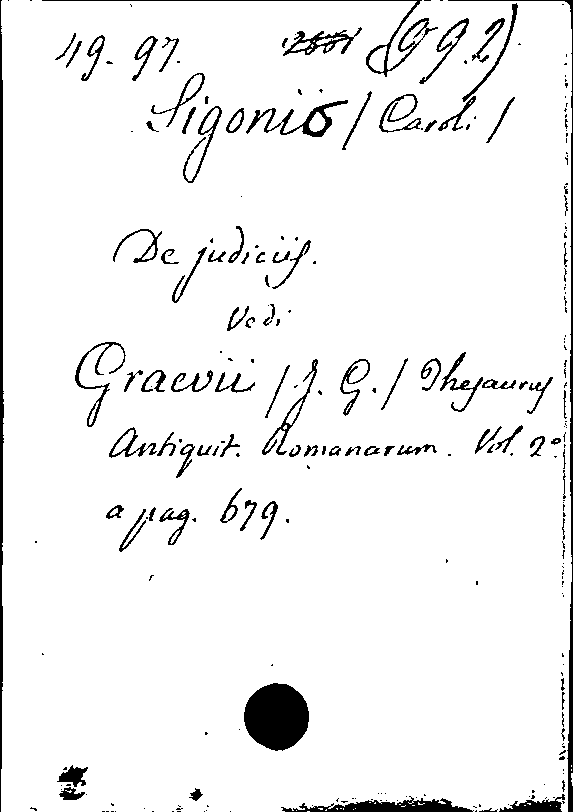 49. 97. (992)
Sigonio / Caroli /
De judiciis.
Vedi
Graevii / J. G. / Thesaurus
Antiquit. Romanarum. Vol. 2º.
a pag. 679.